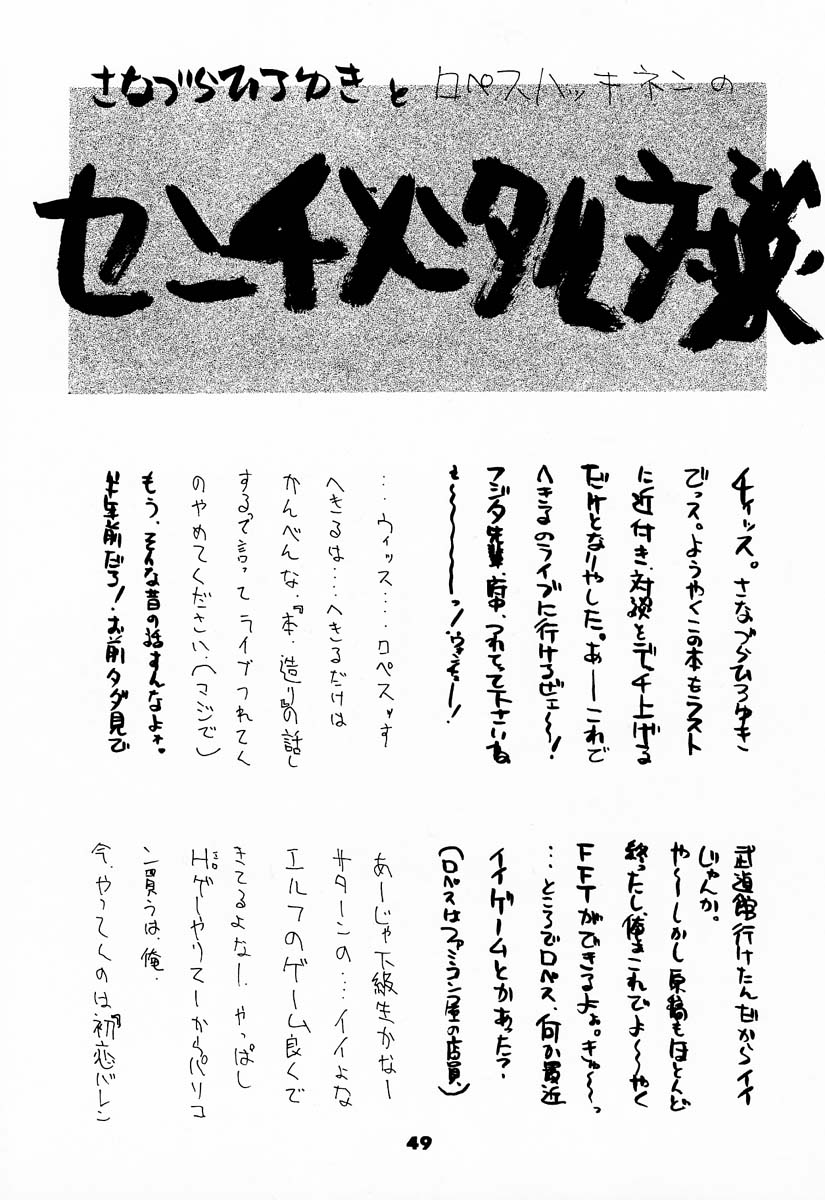 さなづらひろゆきとロペスハッキネンの
センチメンタル対談
チィッス。さなづらひろゆき
でっス。ようやくこの本もラスト
に近付き、対談をデッチ上げる
だけとなりやした。あーこれで
へきるのライブに行けるぜェ〜〜!
フジタ先輩、府中、つれてって下さいね
ェ〜〜〜〜〜っ!
…ウィッス…。ロペスッす
へきるは…へきるだけは
かんべんな、『本造り』の話し
するで言ってライブつれてく
のやめてください、(マジで)
もう、そんな昔の話すんなよォ。
半年前だろ!お前タダ見で
武道館行けたんだからイイ
じゃんか。
や〜〜しかし原稿もほとんど
終ったし、俺もこれでよ〜〜やく
FFTができるよぉ。きゅ〜〜っ
…ところでロペス、何か最近
イイゲームとかあった?
(ロペスはファミコン屋の店員)
あーじゃ下級生かなー
サターンの…イイよな
エルフのゲーム良くで
きてるよなー、やっぱし
Hゲーやりてーからパソコ
ン買うは、俺。
今、やってくのは『初恋バレン
49